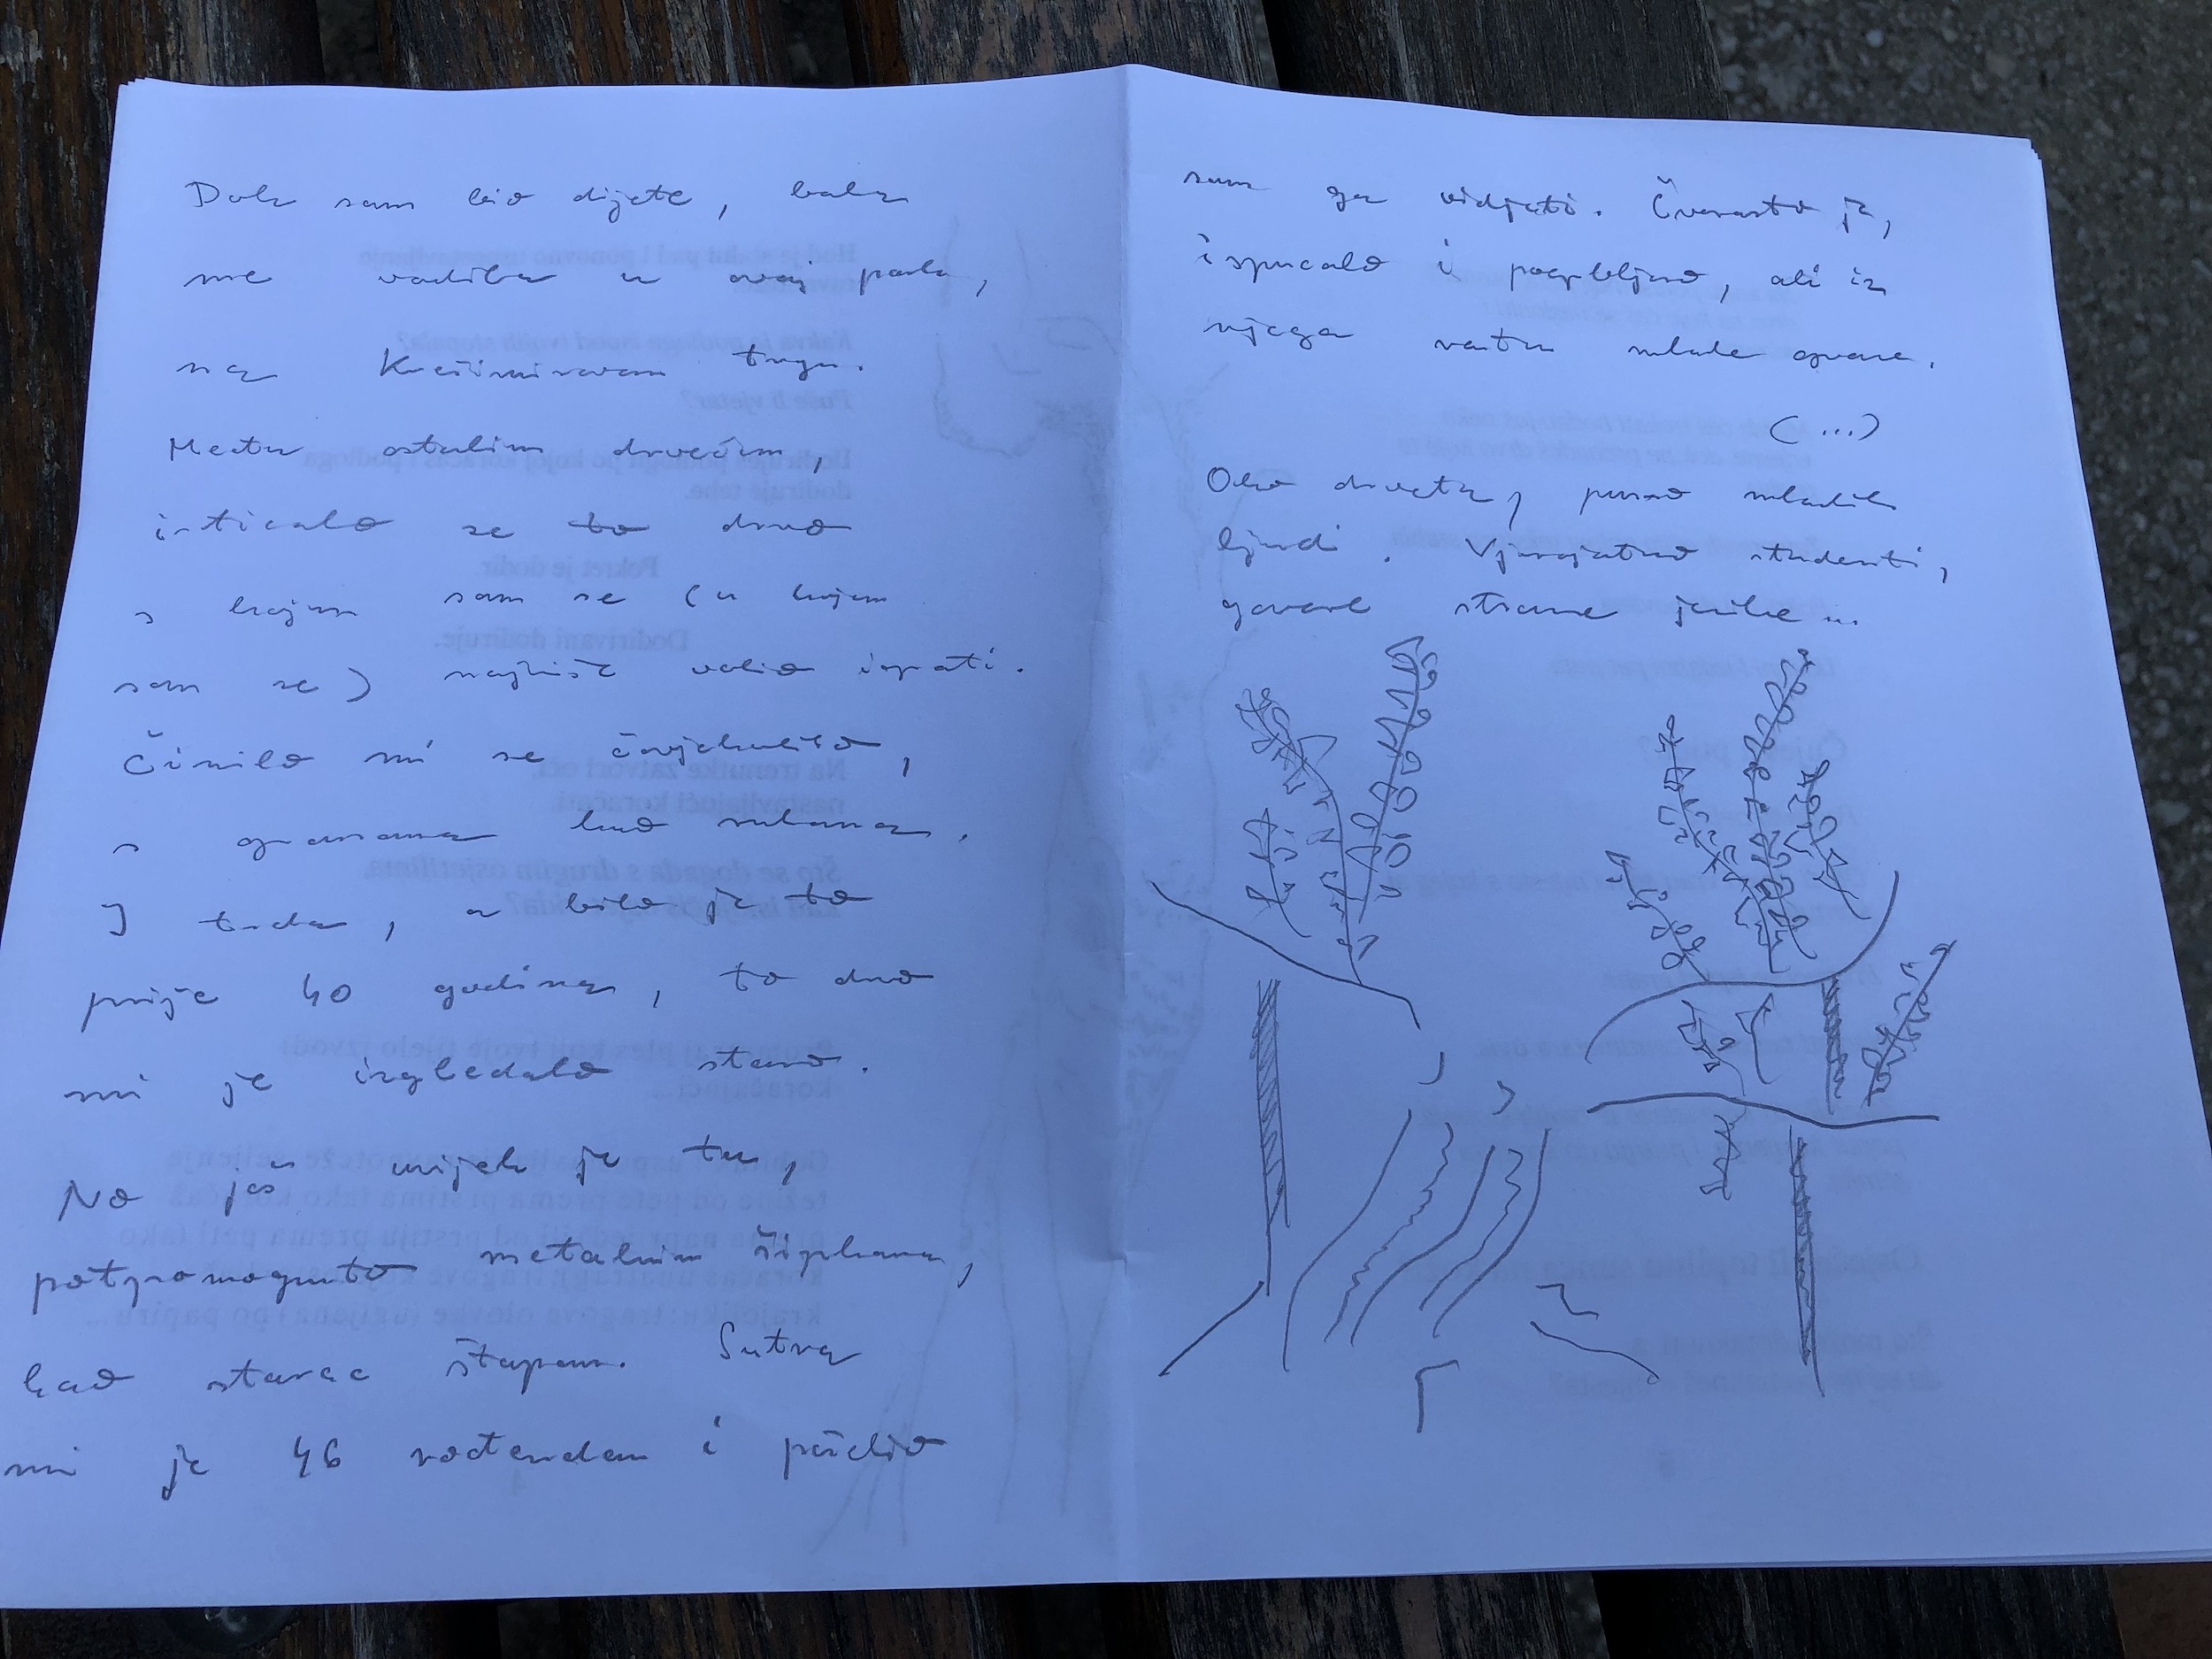 Dok sam bio dijete, baka
me vodila u ovaj park,
na Krešimirovom trgu.
Među ostalim drvećem,
isticalo se to drvo
s kojim sam se (u kojem
sam se) najviše volio igrati.
Činilo mi se čovjekoliko,
s granama kao rukama.
I tada, a bilo je to
prije 40 godina, to drvo
mi je izgledalo staro.
No još uvijek je tu,
potpomognuto metalnim šipkama,
kao starac štapom. Sutra
mi je 46 rođendan i poželio
sam ga vidjeti. Čvorasto je,
ispucalo i pogrbljeno, ali iz
njega rastu mlade grane.
(...)
Oko drveta, puno mladih
ljudi. Vjerojatno studenti,
govore strane jezike...